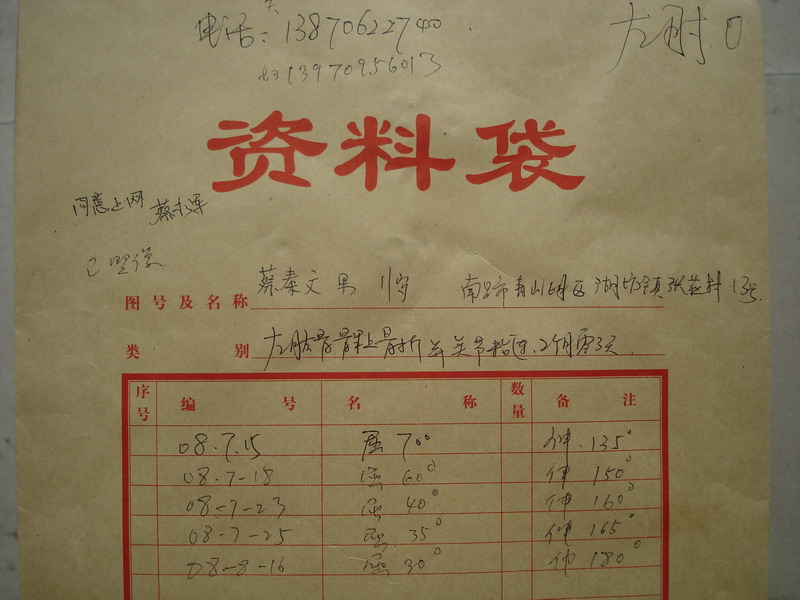 电话: 13870622740
左肘
13970956013
资料袋
同意上网 蔡
图号及名称 蔡春文 男 11岁 南昌市青山湖区湖坊镇 村 13号
类别 左肱骨髁上骨折并关节 2个月零3天
序号 编号 名称 数量 备注
08.7.15 屈 70° 伸 135°
08-7-18 屈 60° 伸 150°
08-7-23 屈 40° 伸 160°
08-7-25 屈 35° 伸 165°
08-8-16 屈 30° 伸 180°